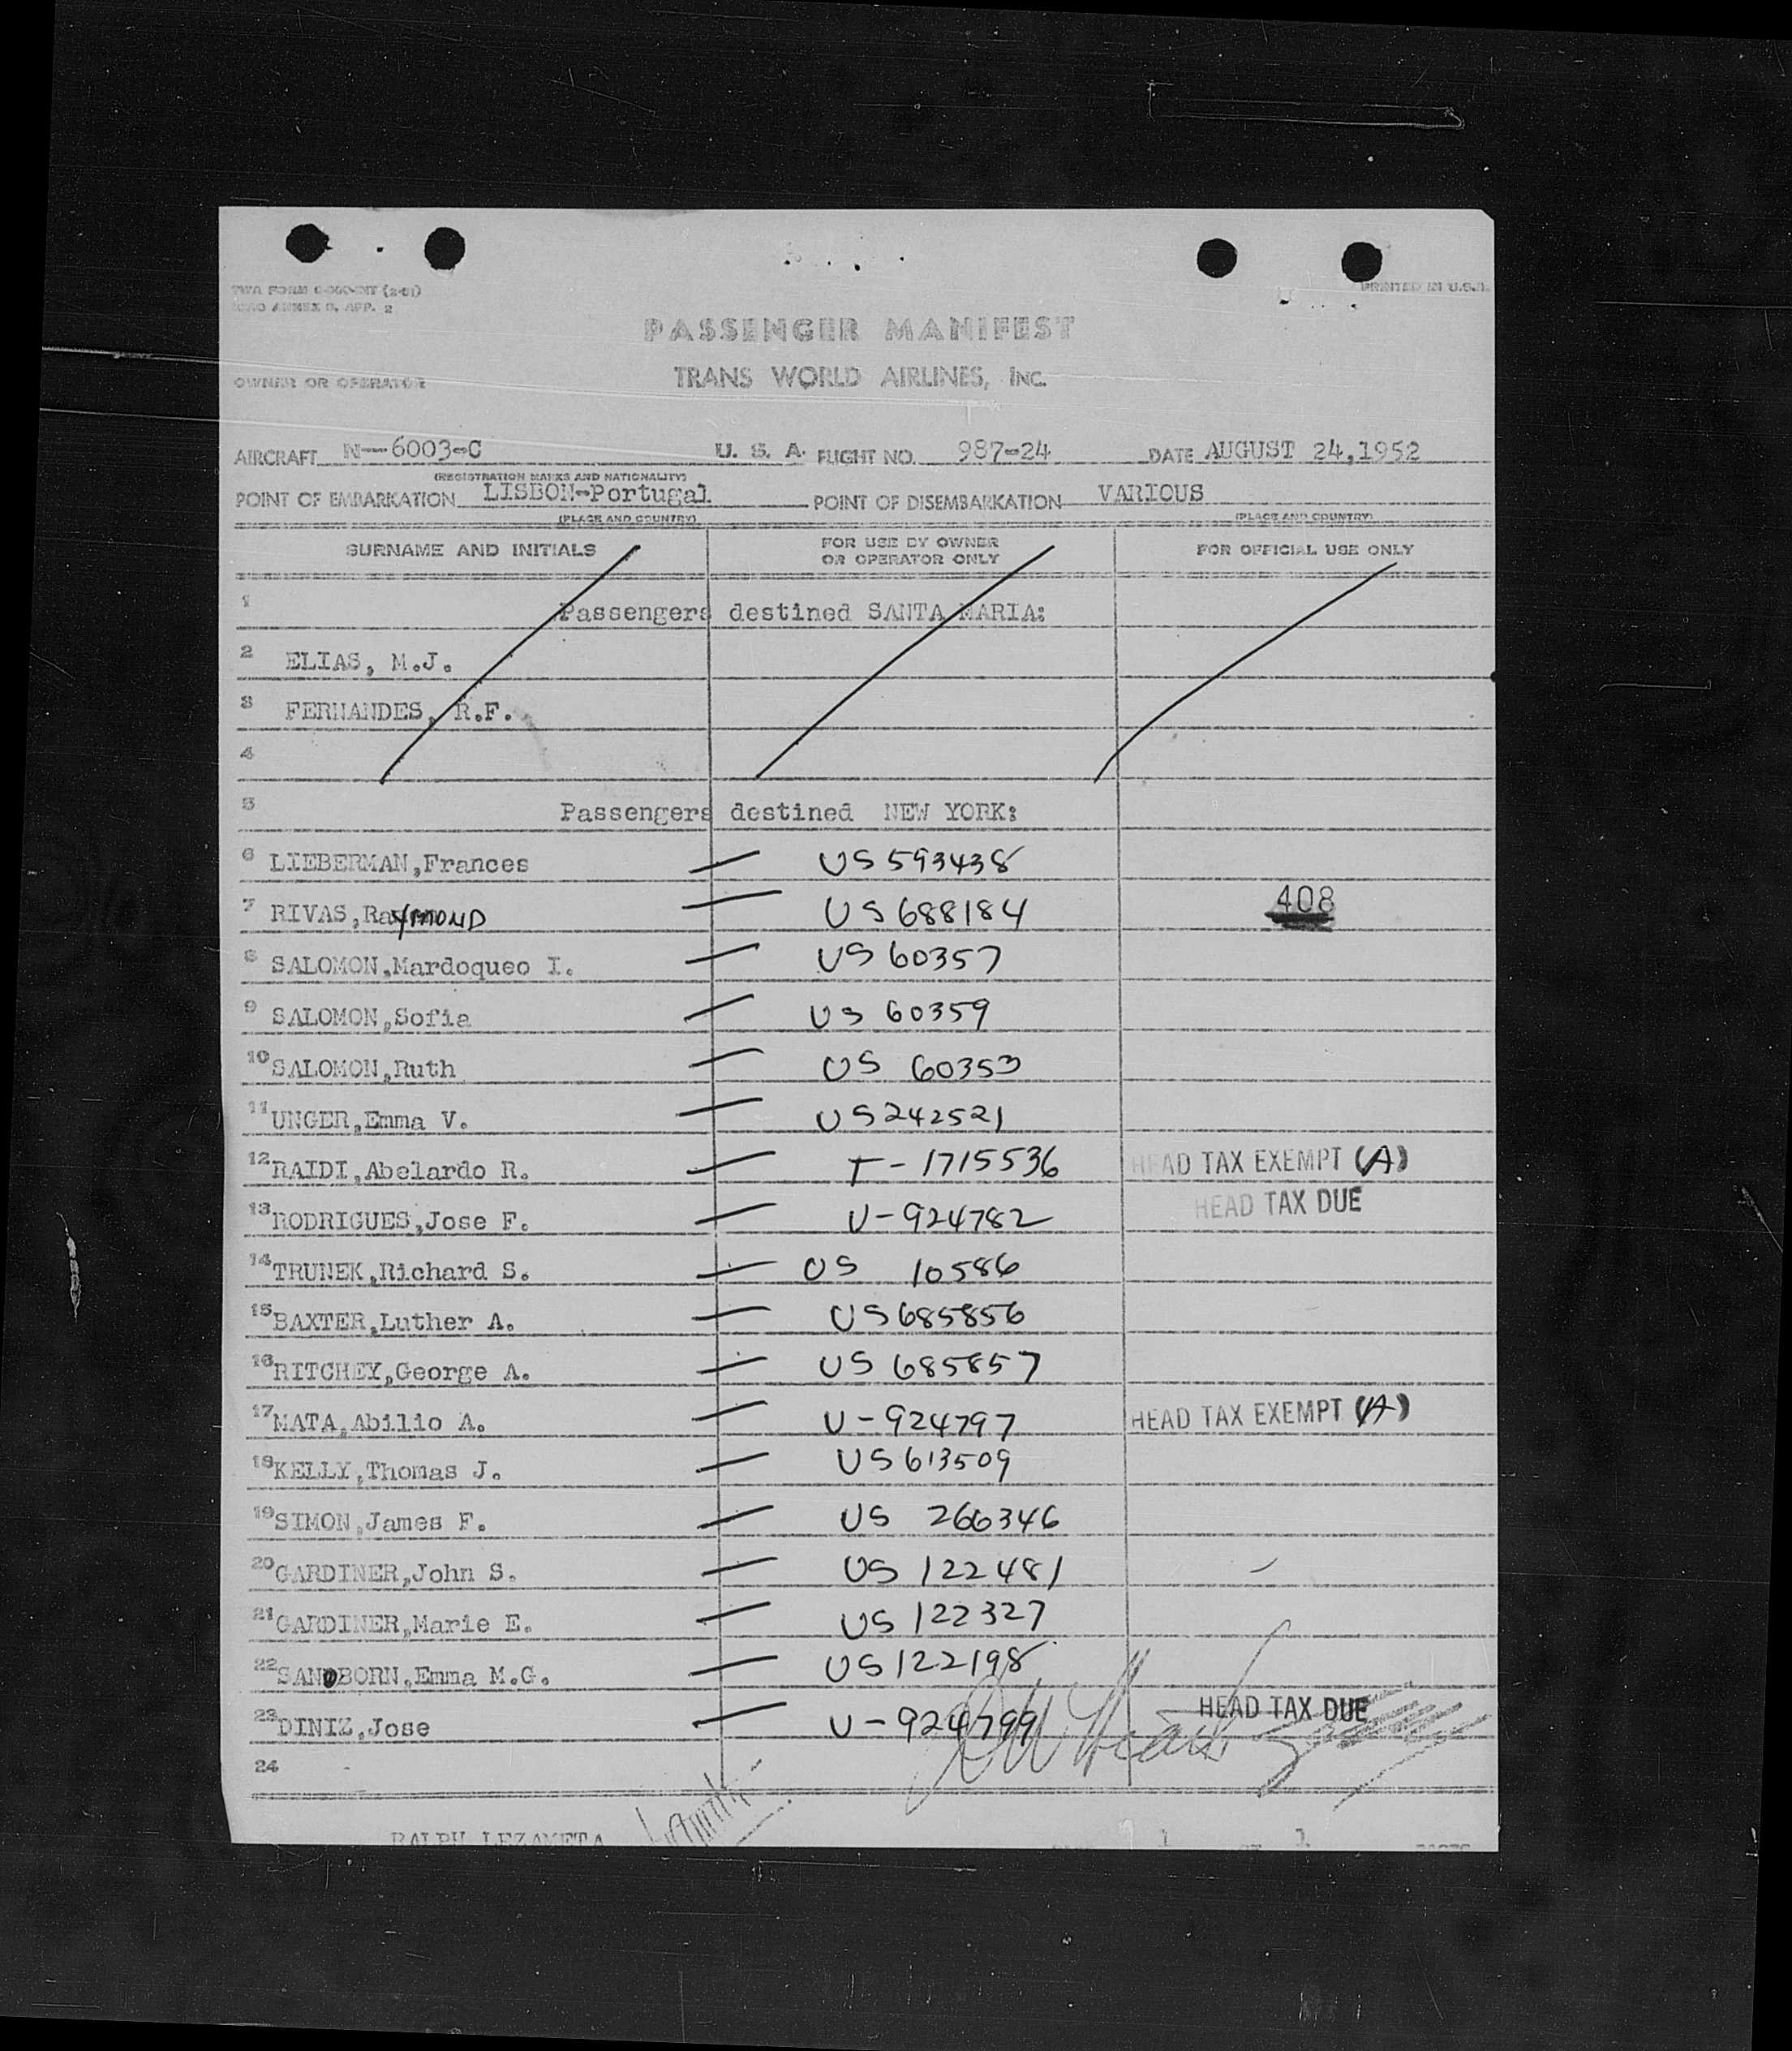 TWA FORM
ICAO ANNEX 9, APP. 2
PRINTED IN U.S.A.
PASSENGER MANIFEST
OWNER OR OPERATOR TRANS WORLD AIRLINES, INC.
AIRCRAFT N--6003-C U. S. A. FLIGHT NO. 987-24 DATE AUGUST 24,1952
(REGISTRATION MARKS AND NATIONALITY)
POINT OF EMBARKATION LISBON-Portugal POINT OF DISEMBARKATION VARIOUS
(PLACE AND COUNTRY) (PLACE AND COUNTRY)
SURNAME AND INITIALS FOR USE BY OWNER OR OPERATOR ONLY FOR OFFICIAL USE ONLY
1 Passengers destined SANTA MARIA:
2 ELIAS, M.J.
3 FERNANDES, R.F.
4
5 Passengers destined NEW YORK:
6 LIEBERMAN,Frances — US 593438
7 RIVAS,RaYMOND — US 688184 408
8 SALOMON,Mardoqueo I. — US 60357
9 SALOMON,Sofia — US 60359
10 SALOMON,Ruth — US 60353
11 UNGER,Emma V. — US 242521
12 RAIDI,Abelardo R. — T-1715536 HEAD TAX EXEMPT (A)
13 RODRIGUES,Jose F. — U-924782 HEAD TAX DUE
14 TRUNEK,Richard S. — US 10586
15 BAXTER,Luther A. — US 685856
16 RITCHEY,George A. — US 685857
17 MATA,Abilio A. — U-924797 HEAD TAX EXEMPT (A)
18 KELLY,Thomas J. — US 613509
19 SIMON,James F. — US 266346
20 GARDINER,John S. — US 122481
21 GARDINER,Marie E. — US 122327
22 SANDBORN,Emma M.G. — US 122198
23 DINIZ,Jose — U-924799 HEAD TAX DUE
24
RALPH LEZAMETA 1 1